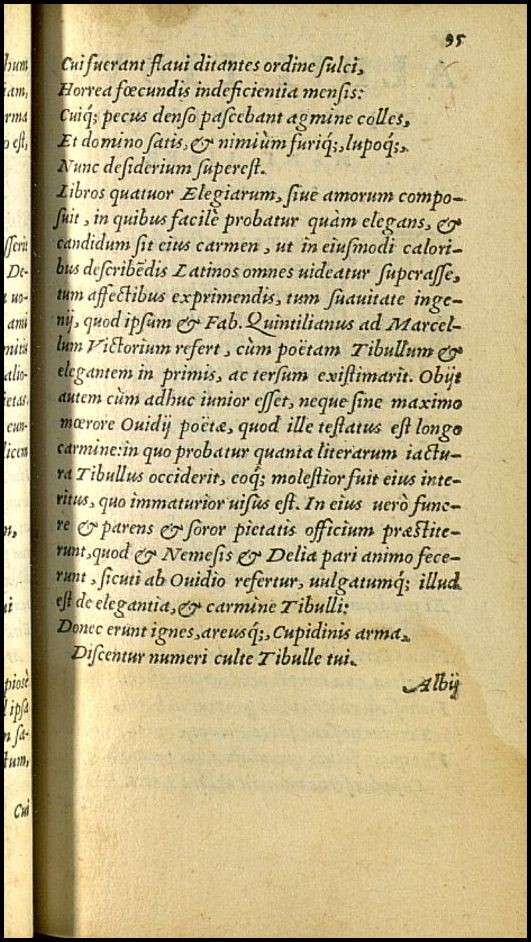 95
Cui fuerant flaui ditantes ordine sulci,
Horrea fœcundis indeficientia mensis:
Cuiq́; pecus denso pascebant agmine colles,
Et domino satis, & nimiùm furiq́;, lupoq́;.
Nunc desiderium superest.
Libros quatuor Elegiarum, siue amorum compo-
suit, in quibus facilè probatur quàm elegans, &
candidum sit eius carmen, ut in eiusmodi calori-
bus describẽdis Latinos omnes uideatur superasse,
tum affectibus exprimendis, tum suauitate inge-
nij, quod ipsum & Fab. Quintilianus ad Marcel-
lum Victorium refert, cùm poëtam Tibullum &
elegantem in primis, ac tersum existimarit. Obijt
autem cùm adhuc iunior esset, neque sine maximo
mœrore Ouidij poëtæ, quod ille testatus est longo
carmine: in quo probatur quanta literarum iactu-
ra Tibullus occiderit, eoq́; molestior fuit eius inte-
ritus, quo immaturior uisus est. In eius uerò fune-
re & parens & soror pietatis officium præstite-
runt, quod & Nemesis & Delia pari animo fece-
runt, sicuti ab Ouidio refertur, uulgatumq́; illud
est de elegantia, & carmine Tibulli:
Donec erunt ignes, arcusq́;, Cupidinis arma,
Discentur numeri culte Tibulle tui.
Albij